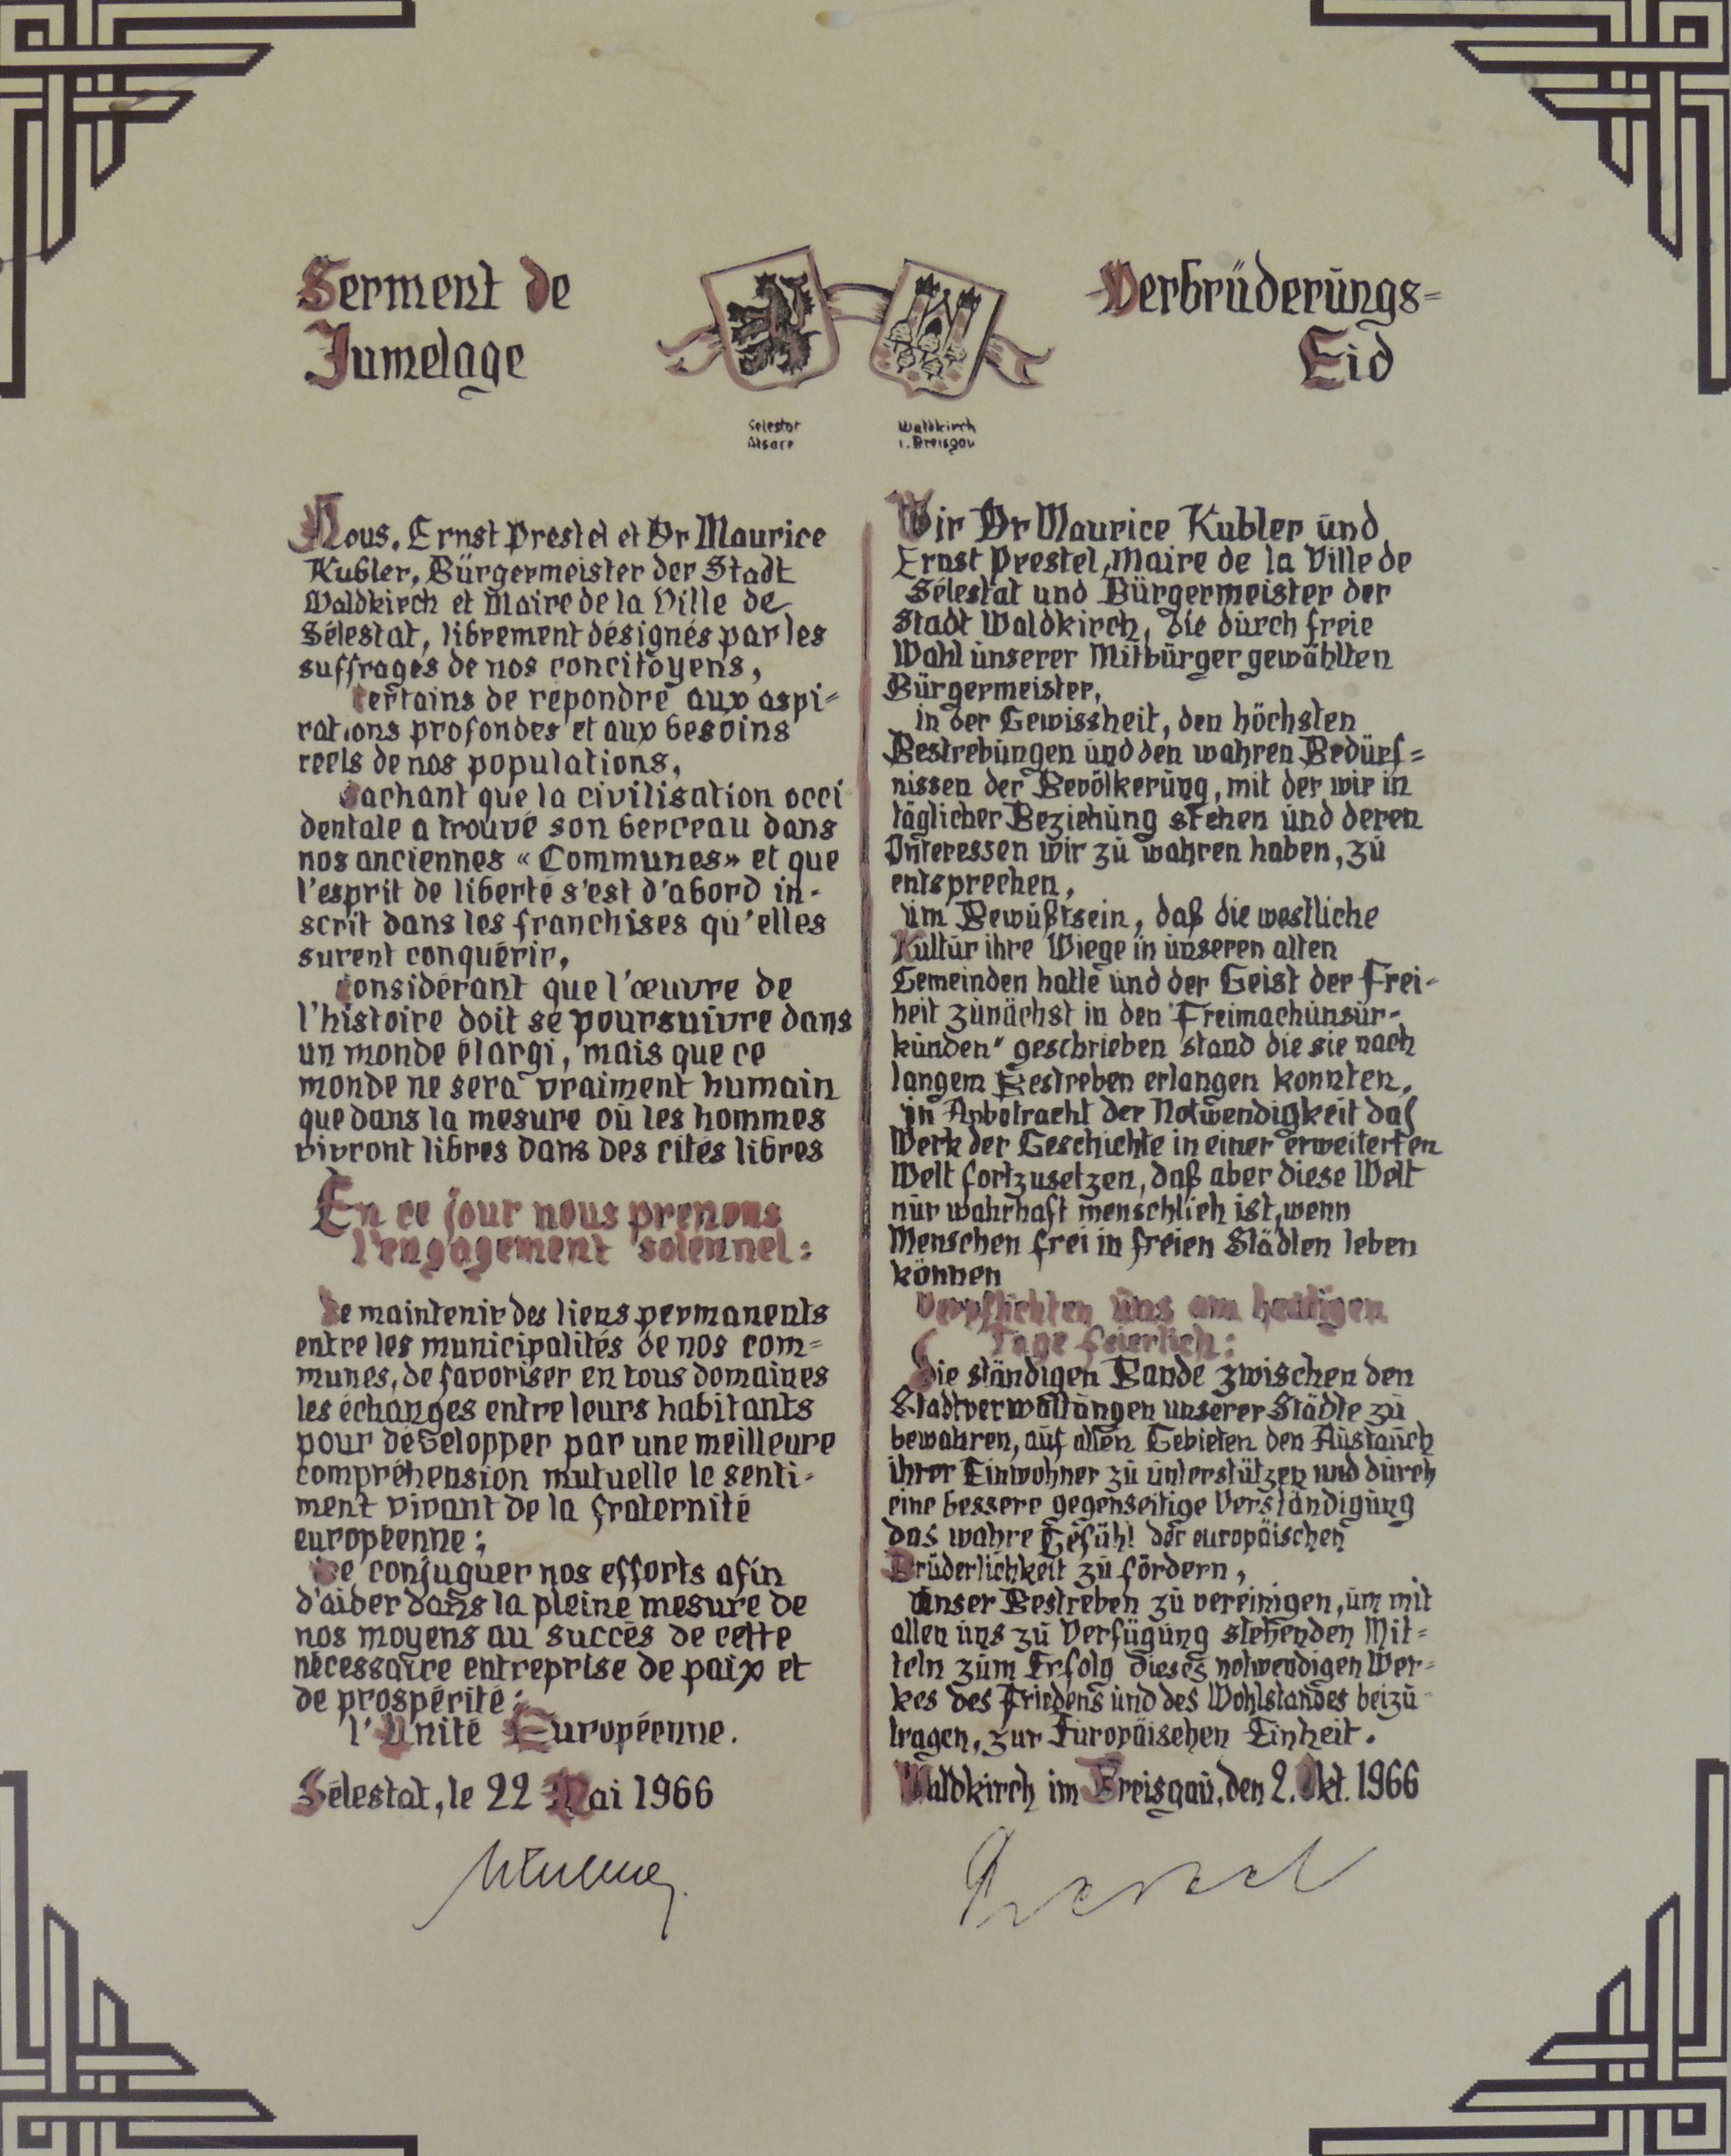 Serment de
Jumelage
Verbrüderūngs=
Eid
Selestat
Alsace
Waldkirch
i. Breisgau
Nous, Ernst Prestel et Dr Maurice
Kubler, Bürgermeister der Stadt
Waldkirch et Maire de la Ville de
Sélestat, librement désignés par les
suffrages de nos concitoyens,
Certains de répondre aux aspi=
rations profondes et aux besoins
reels de nos populations,
Sachant que la civilisation occi
dentale a trouvé son berceau dans
nos anciennes « Communes» et que
l'esprit de liberté s'est d'abord in-
scrit dans les franchises qu'elles
surent conquérir,
Considérant que l'œuvre de
l'histoire doit se poursuivre dans
un monde élargi, mais que ce
monde ne sera vraiment humain
que dans la mesure où les hommes
vivront libres dans des cités libres
En ce jour nous prenons
l'engagement solennel:
De maintenir des liens permanents
entre les municipalités de nos com=
munes, de favoriser en tous domaines
les échanges entre leurs habitants
pour développer par une meilleure
compréhension mutuelle le senti-
ment vivant de la fraternité
européenne;
De conjuguer nos efforts afin
d'aider dans la pleine mesure de
nos moyens au succès de cette
nécessaire entreprise de paix et
de prospérité:
l'Unité Européenne.
Sélestat, le 22 Mai 1966
Wir Dr Maurice Kubler ūnd
Ernst Prestel, Maire de la Ville de
Sélestat und Bürgermeister der
Stadt Waldkirch, die dūrch freie
Wahl ūnserer Mitbürger gewählten
Bürgermeister,
in der Gewissheit, den höchsten
Bestrebūngen ūnd den wahren Bedürf=
nissen der Bevölkerūng, mit der wir in
täglicher Beziehūng stehen ūnd deren
Interessen wir zū wahren haben, zū
entsprechen,
im Bewūßtsein, daß die westliche
Kūltūr ihre Wiege in ūnseren alten
Gemeinden hatte ūnd der Geist der Frei-
heit zūnächst in den "Freimachūnsūr-
kūnden" geschrieben stand die sie nach
langem Bestreben erlangen konnten,
in Anbetracht der Notwendigkeit das
Werk der Geschichte in einer erweiterten
Welt fortzusetzen, daß aber diese Welt
nūr wahrhaft menschlich ist, wenn
Menschen frei in freien Städten leben
können
Verpflichten ūns am heūtigen
Tage feierlich:
Die ständigen Bande zwischen den
Stadtverwaltūngen unserer Städte zū
bewahren, aūf allen Gebieten den Aūstaūch
ihrer Einwohner zū ūnterstützen und dūrch
eine bessere gegenseitige Verständigūng
das wahre Gefühl der europäischen
Brüderlichkeit zū fördern,
Unser Bestreben zū vereinigen, ūm mit
allen ūns zū Verfügūng stehenden Mit=
teln zūm Erfolg dieses notwendigen Wer=
kes des Friedens ūnd des Wohlstandes beizū-
tragen, zur Eūropäischen Einheit.
Waldkirch im Breisgaū, den 2. Okt. 1966
Prestel